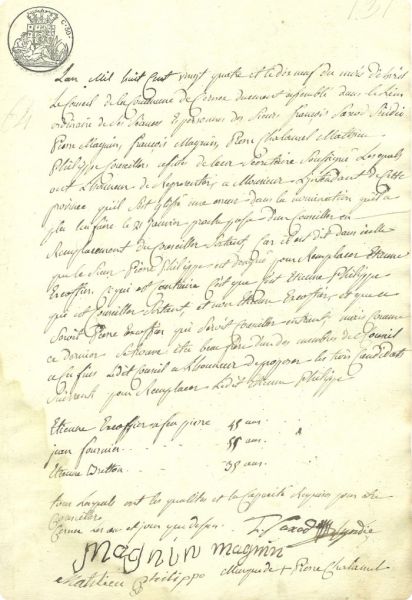 L'an Mil huit Cent vingt quatre et le dix neuf du mois d'avril
Le Conseil de la Commune de Cernex duement assemblé dans le lieu
ordinaire de ses séances En personnes des Sieurs françois Scindic
Pierre Magnin, françois Magnin, Pierre Chatenet Mathieu
Philippe Conseillers assistés de leur Secretaire Soussigné Lesquels
ont L'honneur de representer, a Monsieur L'Intendant de Cette
province qu'il s'est glissé une erreur dans la nomination qu'il a
plu lui faire le 21 janvier proche passé d'un Conseiller en
Remplacement du conseiller Sortant, Car il est dit dans icelle
que le Sieur Pierre Philippe est designé pour Remplacer Etienne
Ercoffier, ce qui est contraire soit que soit Etienne Philippe
qui est Conseiller Sortant, et non Etienne Ercoffier, et que ce
Seroit Pierre Ercoffier qui seroit conseiller entrant, mais comme
ce dernier Se trouve être beau frere d'un des membres du Conseil
Ledit Conseil a L'honneur de proposer les trois Candidats
Suivants pour Remplacer Ledit Etienne Philippe
Etienne Ercoffier a feu pierre 45 ans
jean fournier 55 ans
Etienne Bretton 35 ans
tous lesquels ont les qualités et la Capacité Requise pour être
Conseillers
Cernex les an et jour que dessus
Scindic
Magnin magnin
Mathieu Philippe Marque de + Pierre Chatenet